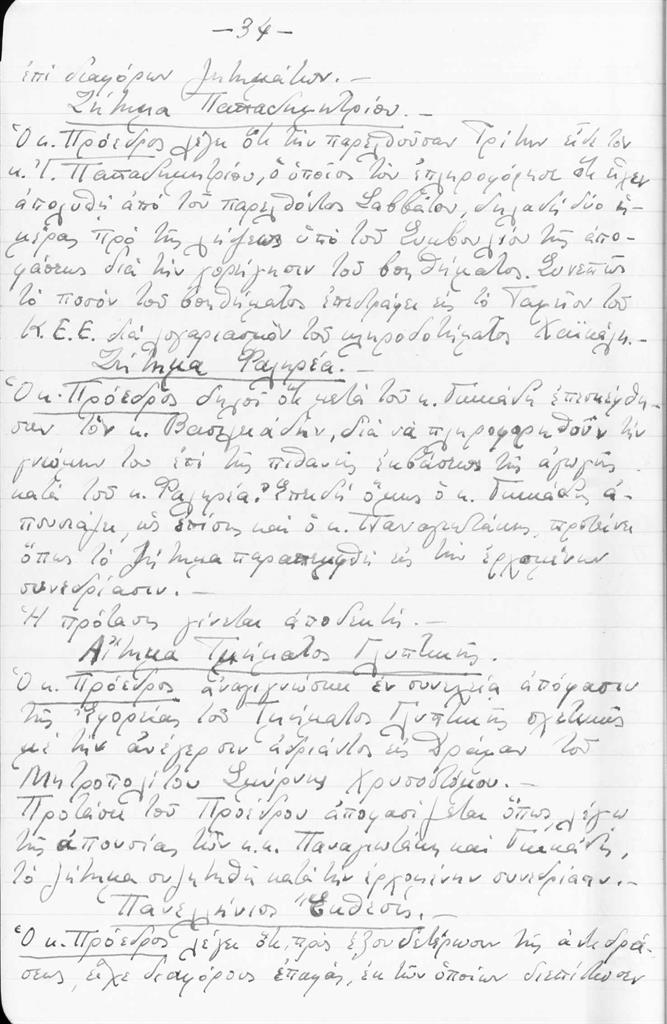 -34-
ἐπὶ διαφόρων ζητημάτων.-
Ζήτημα Παπαδημητρίου.-
Ὁ κ. Πρόεδρος λέγει ὅτι τὴν παρελθοῦσαν Τρίτην εἶδε τὸν
κ. Ἰ. Παπαδημητρίου, ὁ ὁποῖος τὸν ἐπληροφόρησε ὅτι εἶχεν
ἀπολυθῆ ἀπὸ τοῦ παρελθόντος Σαββάτου, δηλαδὴ δύο ἡ-
μέρας πρὸ τῆς λήψεως ὑπὸ τοῦ Συμβουλίου τῆς ἀπο-
φάσεως διὰ τὴν χορήγησιν τοῦ βοηθήματος. Συνεπῶς
τὸ ποσὸν τοῦ βοηθήματος ἐπεστράφη εἰς τὸ Ταμεῖον τοῦ
Κ.Ε.Ε. διὰ λογαριασμὸν τοῦ κληροδοτήματος Χαϊκάλη.-
Ζήτημα Φαληρέα.-
Ὁ κ. Πρόεδρος δηλοῖ ὅτι μετὰ τοῦ κ. Γικιάδη ἐπεσκέφθη-
σαν τὸν κ. Βασιλειάδην, διὰ νὰ πληροφορηθοῦν τὴν
γνώμην του ἐπὶ τῆς πιθανῆς ἐκβάσεως τῆς ἀγωγῆς
κατὰ τοῦ κ. Φαληρέα. Ἐπειδὴ ὅμως ὁ κ. Γικιάδης ἀ-
πουσιάζει, ὡς ἐπίσης καὶ ὁ κ. Παναγιωτάκης, προτείνει
ὅπως τὸ ζήτημα παραπεμφθῆ εἰς τὴν ἐρχομένην
συνεδρίασιν.-
Ἡ πρότασις γίνεται ἀποδεκτή.-
Αἴτημα Τμήματος Γλυπτικῆς.
Ὁ κ. Πρόεδρος ἀναγιγνώσκει ἐν συνεχείᾳ ἀπόφασιν
τῆς Ἐφορείας τοῦ Τμήματος Γλυπτικῆς σχετικῶς
μὲ τὴν ἀνέγερσιν ἀνδριάντος εἰς Δράμαν τοῦ
Μητροπολίτου Σμύρνης Χρυσοστόμου.-
Προτάσει τοῦ Προέδρου ἀποφασίζεται ὅπως, λόγῳ
τῆς ἀπουσίας τῶν κ.κ. Παναγιωτάκη καὶ Γικιάδη,
τὸ ζήτημα συζητηθῆ κατὰ τὴν ἐρχομένην συνεδρίασιν.-
Πανελλήνιος Ἔκθεσις.-
Ὁ κ. Πρόεδρος λέγει ὅτι, πρὸς ἐξουδετέρωσιν τῆς ἀντιδρά-
σεως, εἶχε διαφόρους ἐπαφάς, ἐκ τῶν ὁποίων διεπίστωσεν